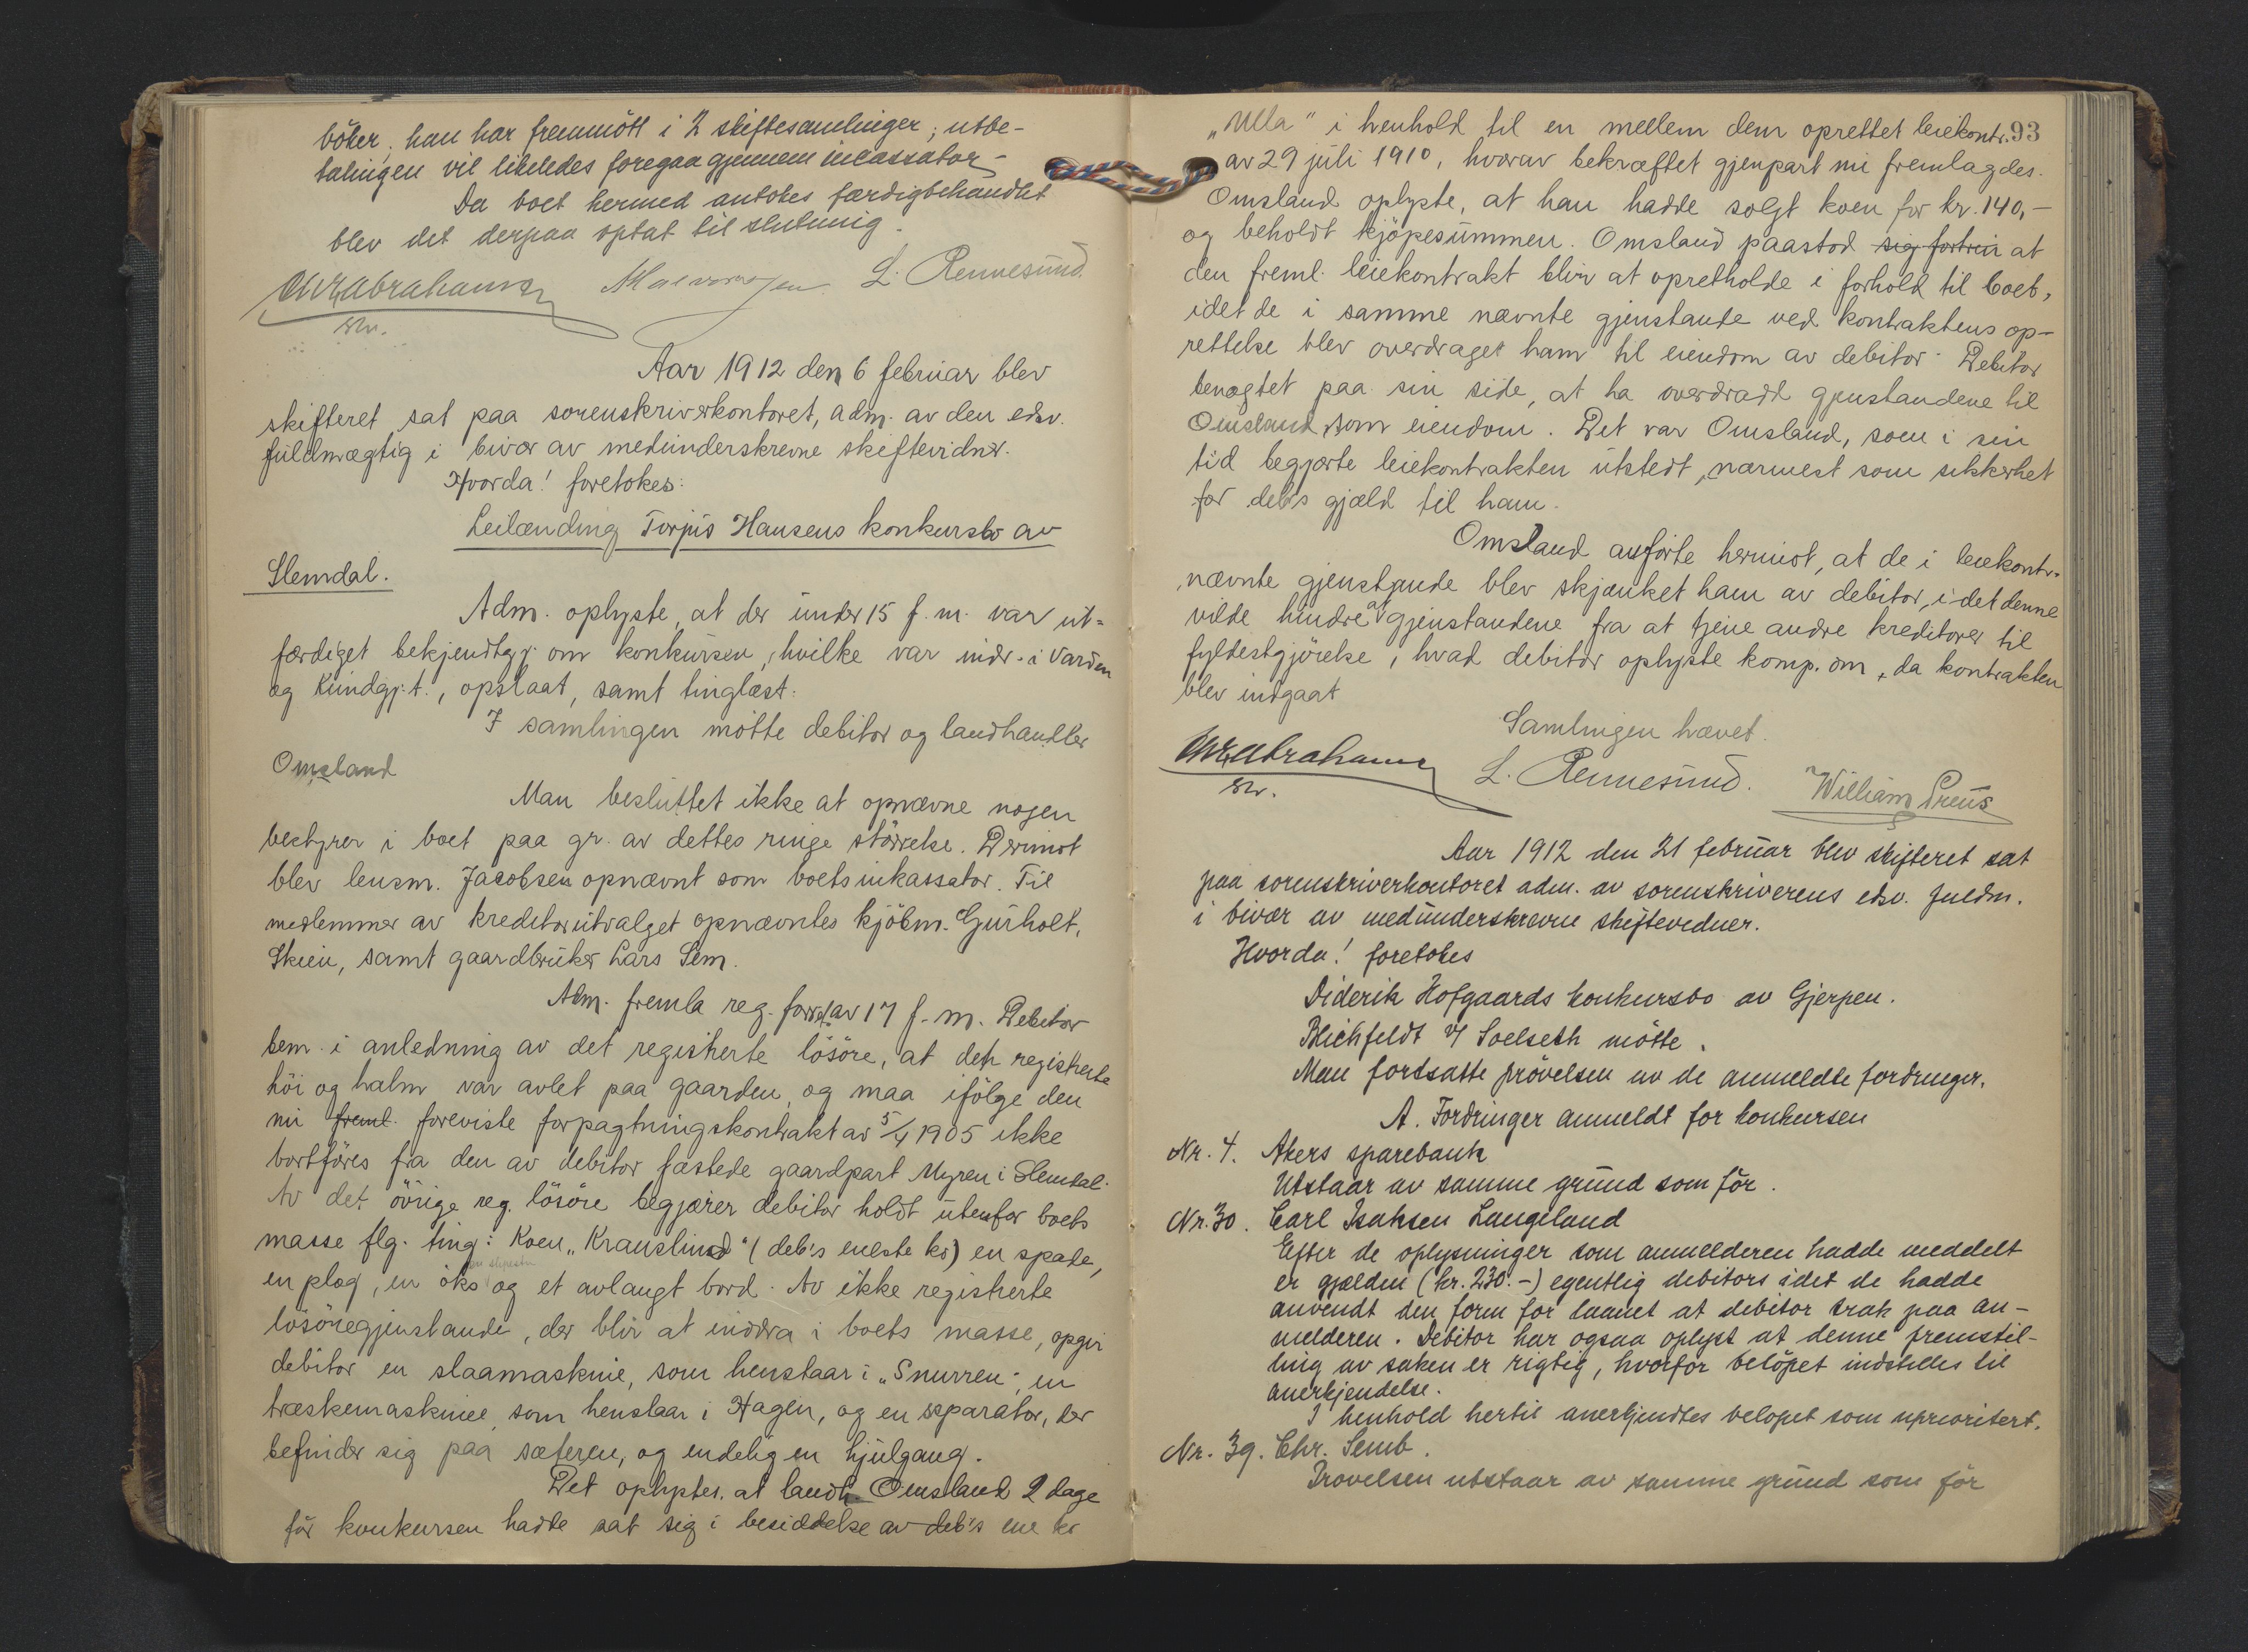 böker, han har fremmött i 2 skiftesamlinger; utbe-
talingen vil likeledes foregaa gjennem incassator-
Da boet hermed antokes færdigbehandlet
blev det derpaa optat til slutning.
Abrahamsen Halvorsen L. Rennesund.
Aar 1912 den 6 februar blev
skifteret sat paa sorenskriverkontoret, adm. av den edsv.
fuldmægtig i bivær av medunderskrevne skiftevidner.
Hvorda! foretokes:
Leilænding Torjus Hansens konkursbo av
Slemdal.
Adm. oplyste, at der under 15 f. m. var ut-
færdiget bekjendtgj. om konkursen, hvilke var indr. i Varden
og Kundgj.t., opslaat, samt tinglæst.
I samlingen mötte debitor og landhandler
Omsland
Man besluttet ikke at opnævne nogen
bestyrer i boet paa gr. av dettes ringe störrelse. Derimot
blev lensm. Jacobsen opnævnt som boets inkassator. Til
medlemmer av kreditorutvalget opnævntes kjöbm. Gurholt,
Skien, samt gaardbruker Lars Sem.
Adm. fremla reg. forretn. av 17 f. m. Debitor
bem. i anledning av det registrerte lösöre, at det registrerte
höi og halm var avlet paa gaarden, og maa ifölge den
nu freml. foreviste forpagtningskontrakt av 5/4 1905 ikke
bortföres fra den av debitor fæstede gaardpart Myren i Slemdal.
Av det övrige reg. lösöre begjærer debitor holdt utenfor boets
masse flg. ting: Koen "Kranslind" (deb's eneste ko) en spade,
en plog, en öks og et avlangt bord. Av ikke registrerte
lösöregjenstande, der blir at inddra i boets masse, opgir
debitor en slaamaskine, som henstaar i "Snurren", en
træskemaskine som henstaar i Hagen, og en separator, der
befinder sig paa sæteren, og endelig en hjulgang.
Det oplystes, at landh. Omsland 2 dage
för konkursen hadde sat sig i besiddelse av deb's ene ko
93
"Ulla" i henhold til en mellem dem oprettet leiekontr.
av 29 juli 1910, hvorav bekræftet gjenpart nu fremlagdes.
Omsland oplyste, at han hadde solgt koen for kr. 140,-
og beholdt kjöpesummen. Omsland paastod sig fortrin at
den freml. leiekontrakt blir at opretholde i forhold til boet,
idet de i samme nævnte gjenstande ved kontraktens op-
rettelse blev overdraget ham til eiendom av debitor. Debitor
benegtet paa sin side, at ha overdradd gjenstandene til
Omsland som eiendom. Det var Omsland, som i sin
tid begjærte leiekontrakten utstedt, nærmest som sikkerhet
for deb's gjæld til ham.
Omsland anförte herimot, at de i leiekontr.
nævnte gjenstande blev skjænket ham av debitor, idet denne
vilde hindre at gjenstandene fra at tjene andre kreditorer til
fyldestgjörelse, hvad debitor oplyste komp. om, da kontrakten
blev indgaat
Samlingen hævet.
Abrahamsen L. Rennesund. William Preus
Aar 1912 den 21 februar blev skifteret sat
paa sorenskriverkontoret adm. av sorenskriverens edsv. fuldm.
i bivær av medunderskrevne skiftevidner.
Hvorda! foretokes
Diderik Hofgaards konkursbo av Gjerpen.
Blichfeldt v/ Soelseth mötte.
Man fortsatte prövelsen av de anmeldte fordringer.
A. Fordringer anmeldt för konkursen
Nr. 4. Akers sparebank
Utstaar av samme grund som för.
Nr. 30. Carl Isaksen Langeland
Efter de oplysninger som anmelderen hadde meddelt
er gjælden (kr. 230.-) egentlig debitors idet de hadde
anvendt den form for laanet at debitor trak paa an-
melderen. Debitor har ogsaa oplyst at denne fremstil-
ling av saken er rigtig, hvorfor belöpet indstilles til
anerkjendelse.
I henhold hertil anerkjendtes belöpet som uprioritert.
Nr. 39. Chr. Semb.
Prövelsen utstaar av samme grund som för